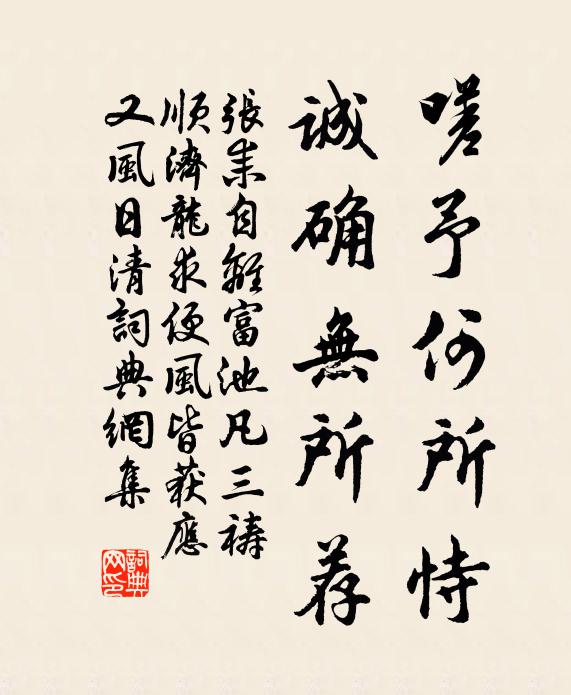 嗟予何所恃
誠确無所荐
張耒自離富池凡三禱
順濟龍求便風皆获應
又風日清詞典網集
詞典网印